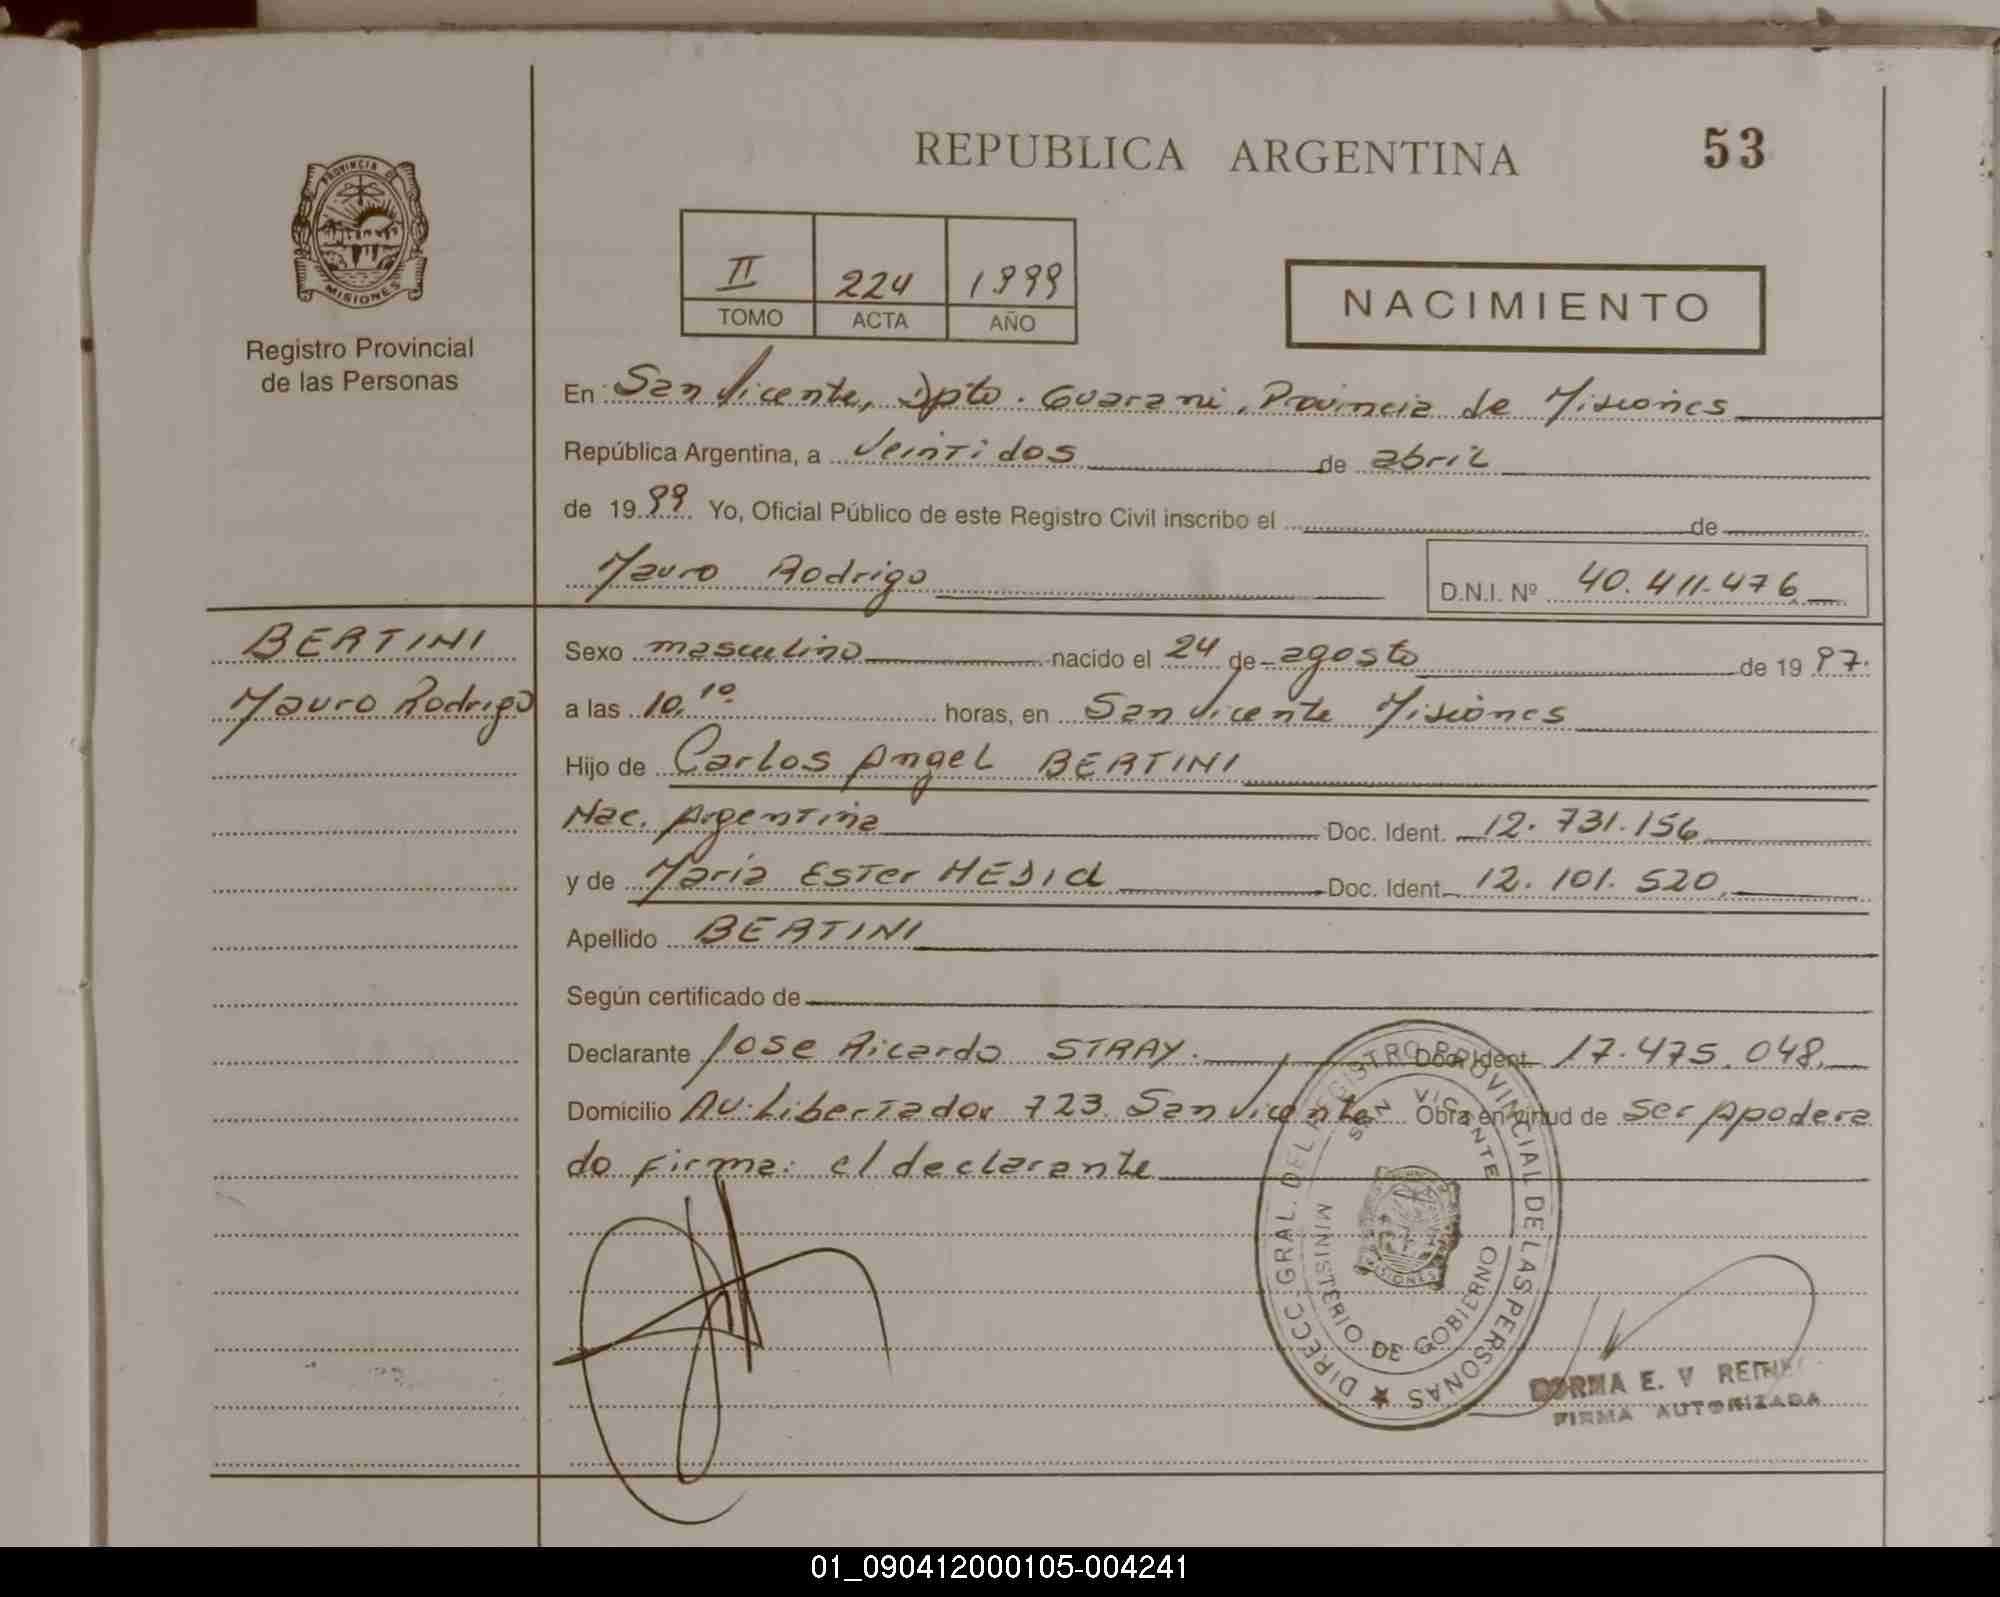 REPUBLICA ARGENTINA
53
PROVINCIA DE
MISIONES
Registro Provincial
de las Personas
II 224 1999
TOMO ACTA AÑO
NACIMIENTO
En: San Vicente, Dpto. Guarani, Provincia de Misiones
República Argentina, a veintidos de abril
de 1999 Yo, Oficial Público de este Registro Civil inscribo el de
Mauro Rodrigo D.N.I. Nº 40.411.476
BERTINI
Mauro Rodrigo
Sexo masculino nacido el 24 de agosto de 1997.
a las 10,10 horas, en San Vicente Misiones
Hijo de Carlos Angel BERTINI
Nac. Argentina Doc. Ident. 12.731.156
y de Maria Ester Doc. Ident. 12.101.520
Apellido BERTINI
Según certificado de
Declarante Jose Ricardo STRAY. Doc. Ident. 17.475.048
Domicilio Av. Libertador 723 San Vicente Obra en virtud de ser Apodera
do Firma: el declarante
DIRECC. GRAL. DEL REGISTRO PROVINCIAL DE LAS PERSONAS
SAN VICENTE
MISIONES
MINISTERIO DE GOBIERNO
E. V
FIRMA AUTORIZADA
01_090412000105-004241